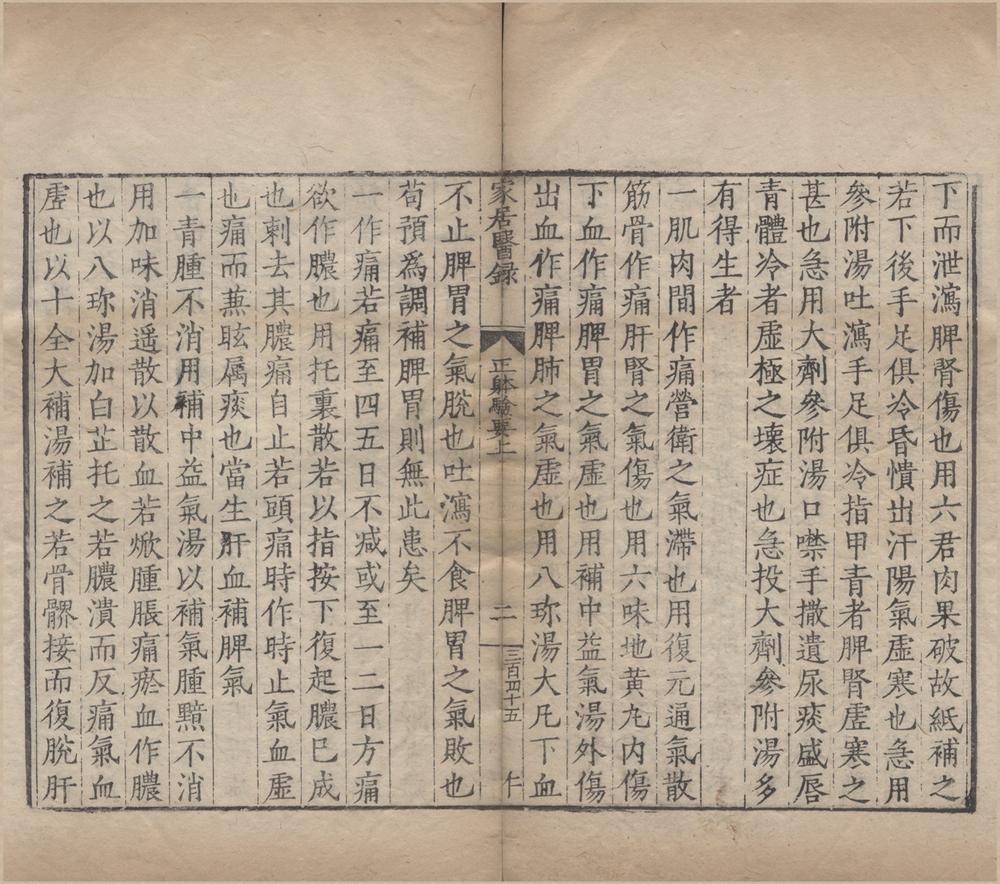 下而泄瀉脾腎傷也用六君肉果破故紙補之
若下後手足俱冷昏憒出汗陽氣虛寒也急用
參附湯吐瀉手足俱冷指甲青者脾腎虛寒之
甚也急用大劑參附湯口噤手撒遺尿痰盛唇
青體冷者虛極之壞症也急投大劑參附湯多
有得生者
一肌肉間作痛營衛之氣滯也用復元通氣散
筋骨作痛肝腎之氣傷也用六味地黃丸內傷
下血作痛脾胃之氣虛也用補中益氣湯外傷
出血作痛脾肺之氣虛也用八珎湯大凡下血
家居醫錄 正躰驗要上 二 三百四十五 仁
不止脾胃之氣脫也吐瀉不食脾胃之氣敗也
苟預為調補脾胃則無此患矣
一作痛若痛至四五日不减或至一二日方痛
欲作膿也用托裏散若以指按下復起膿巳成
也刺去其膿痛自止若頭痛時作時止氣血虛
也痛而蒹眩属痰也當生肝血補脾氣
一青腫不消用補中益氣湯以補氣腫黯不消
用加味消遥散以散血若焮腫脹痛瘀血作膿
也以八珎湯加白芷托之若膿潰而反痛氣血
虛也以十全大補湯補之若骨髎接而復脫肝